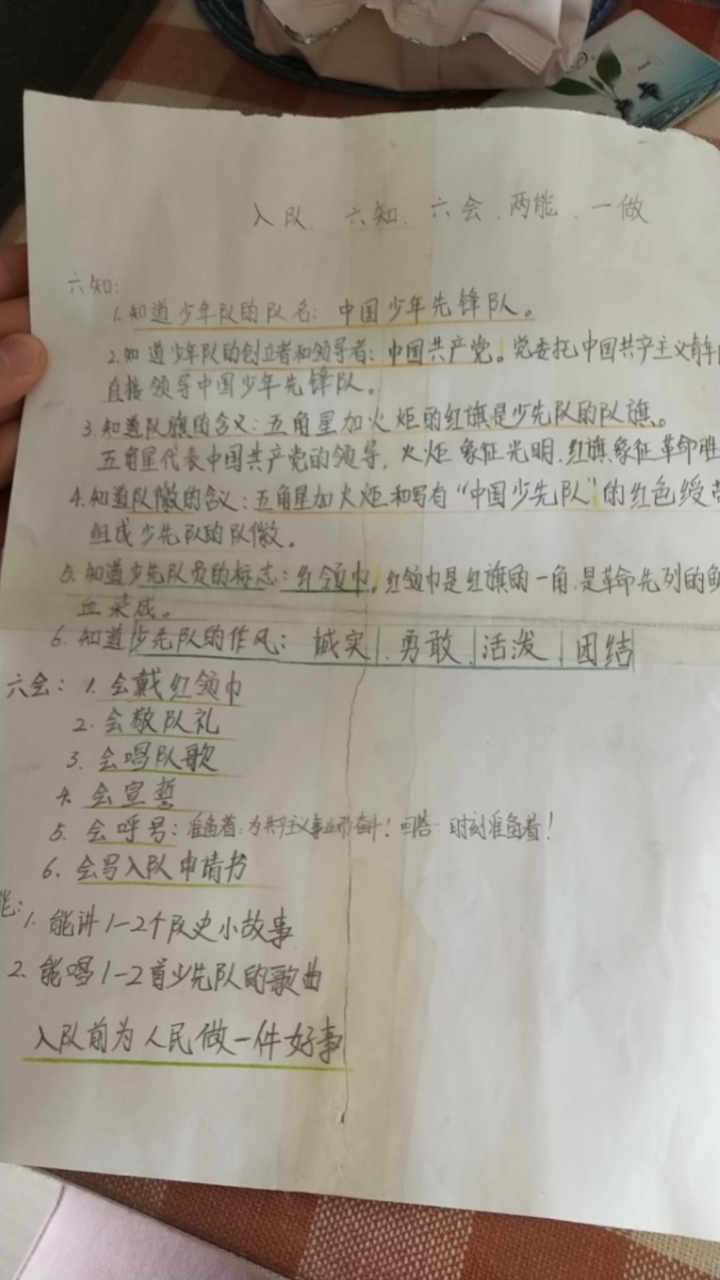 入队 六知、六会、两能、一做
六知:
1.知道少年队的队名:中国少年先锋队。
2.知道少年队的创立者和领导者:中国共产党。党委托中国共产主义青年
直接领导中国少年先锋队。
3.知道队旗的含义:五角星加火炬的红旗是少先队的队旗。
五角星代表中国共产党的领导,火炬象征光明,红旗象征革命胜
4.知道队徽的含义:五角星加火炬和写有“中国少先队”的红色绶带
组成少先队的队徽。
5.知道少先队员的标志:红领巾,红领巾是红旗的一角,是革命先列的鲜
血染成。
6.知道少先队的作风:诚实|勇敢|活泼|团结
六会:1.会戴红领巾
2.会敬队礼
3.会唱队歌
4.会宣誓
5.会呼号:准备着:为共产主义事业而奋斗!回答:时刻准备着!
6.会写入队申请书
能:1.能讲1-2个队史小故事
2.能唱1-2首少先队的歌曲
入队前为人民做一件好事